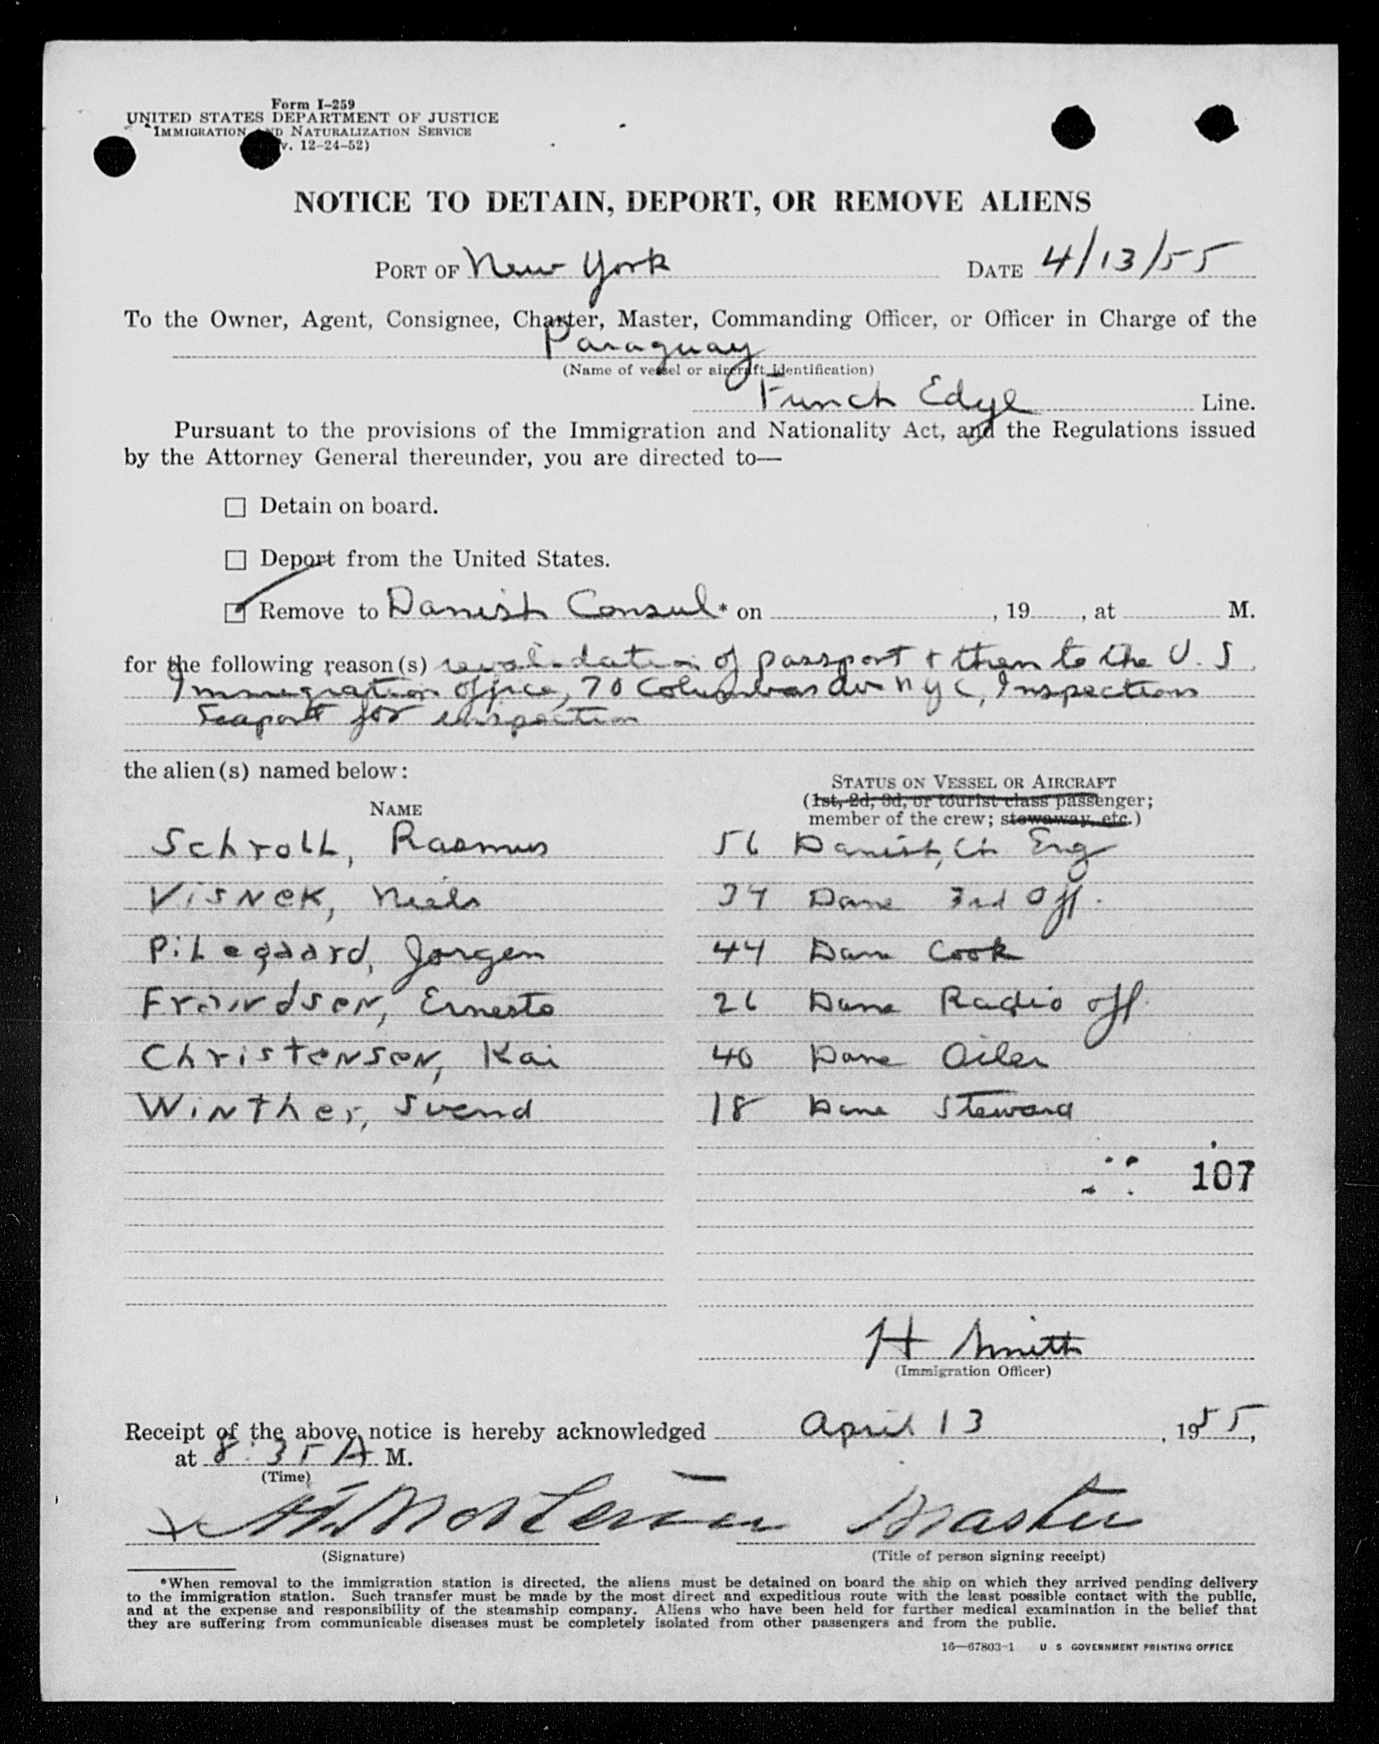 Form I-259
UNITED STATES DEPARTMENT OF JUSTICE
IMMIGRATION AND NATURALIZATION SERVICE
v. 12-24-52)
NOTICE TO DETAIN, DEPORT, OR REMOVE ALIENS
PORT OF New York DATE 4/13/55
To the Owner, Agent, Consignee, Charter, Master, Commanding Officer, or Officer in Charge of the
Paraguay
(Name of vessel or aircraft identification)
Funch Edye Line.
Pursuant to the provisions of the Immigration and Nationality Act, and the Regulations issued
by the Attorney General thereunder, you are directed to—
Detain on board.
Deport from the United States.
Remove to Danish Consul* on , 19 , at M.
for the following reason(s) revalidation of passport + then to the U.S.
Immigration office, 70 Columbus av NYC, Inspections
Seaport for inspection
the alien(s) named below:
STATUS ON VESSEL OR AIRCRAFT
(1st, 2d, 3d, or tourist class passenger;
NAME
member of the crew; stowaway, etc.)
Schroll, Rasmus 56 Danish, Ch Eng
Visnek, Niels 34 Dane 3rd Off.
Pilegaard, Jorgen 44 Dane Cook
Frandsen, Ernesto 26 Dane Radio off
Christensen, Kai 40 Dane Oiler
Winther, Svend 18 Dane Steward
107
H Smith
(Immigration Officer)
Receipt of the above notice is hereby acknowledged April 13, 1955,
at 8:35 A M.
(Time)
Master
(Signature) (Title of person signing receipt)
*When removal to the immigration station is directed, the aliens must be detained on board the ship on which they arrived pending delivery
to the immigration station. Such transfer must be made by the most direct and expeditious route with the least possible contact with the public,
and at the expense and responsibility of the steamship company. Aliens who have been held for further medical examination in the belief that
they are suffering from communicable diseases must be completely isolated from other passengers and from the public.
16—67803-1 U S GOVERNMENT PRINTING OFFICE